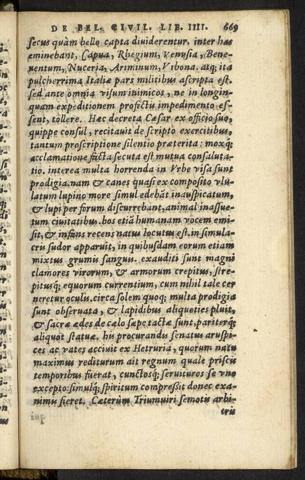 DE BEL. CIVIL. LIB. IIII. 669
secus quàm bello capta diuiderentur, inter has
eminebant, Capua, Rhegium, Venusia, Bene-
uentum, Nuceria, Ariminum, Vibona. atq; ita
pulcherrima Italiæ pars militibus ascripta est.
sed ante omnia visum inimicos, ne in longin-
quam expeditionem profectu impedimento es-
sent, tollere. Hæc decreta Cæsar ex officio suo,
quippe consul, recitauit de scripto exercitibus,
tantum proscriptione silentio præterita: moxq;
acclamatione facta secuta est mutua consaluta-
tio. interea multa horrenda in Vrbe visa sunt
prodigia. nam & canes quasi ex composito vlu-
latum lupino more simul edebãt inauspicatum,
& lupi per forum discurrebant, animal inassue-
tum ciuitatibus. bos etiã humanam vocem emi-
sit, & infans recens natus locutus est. in simula-
cris sudor apparuit, in quibusdam eorum etiam
mixtus grumis sanguin. exauditi sunt magni
clamores virorum, & armorum crepitus, stre-
pitusq; equorum currentium, cum nihil tale cer
neretur oculis. circa solem quoq; multa prodigia
sunt obseruata, & lapidibus aliquoties pluit,
& sacræ ædes de cælo sæpe tactæ sunt, pariterq;
aliquot statuæ. his procurandis senatus aruspi-
ces ac vates acciuit ex Hetruria, quorum natu
maximus rediturum ait regnum quale priscis
temporibus fuerat, cunctosq; seruituros se vno
excepto: simulq; spiritum compressit donec exa-
nimis fieret. Cæterùm Triumuiri semotis arbi-
tris